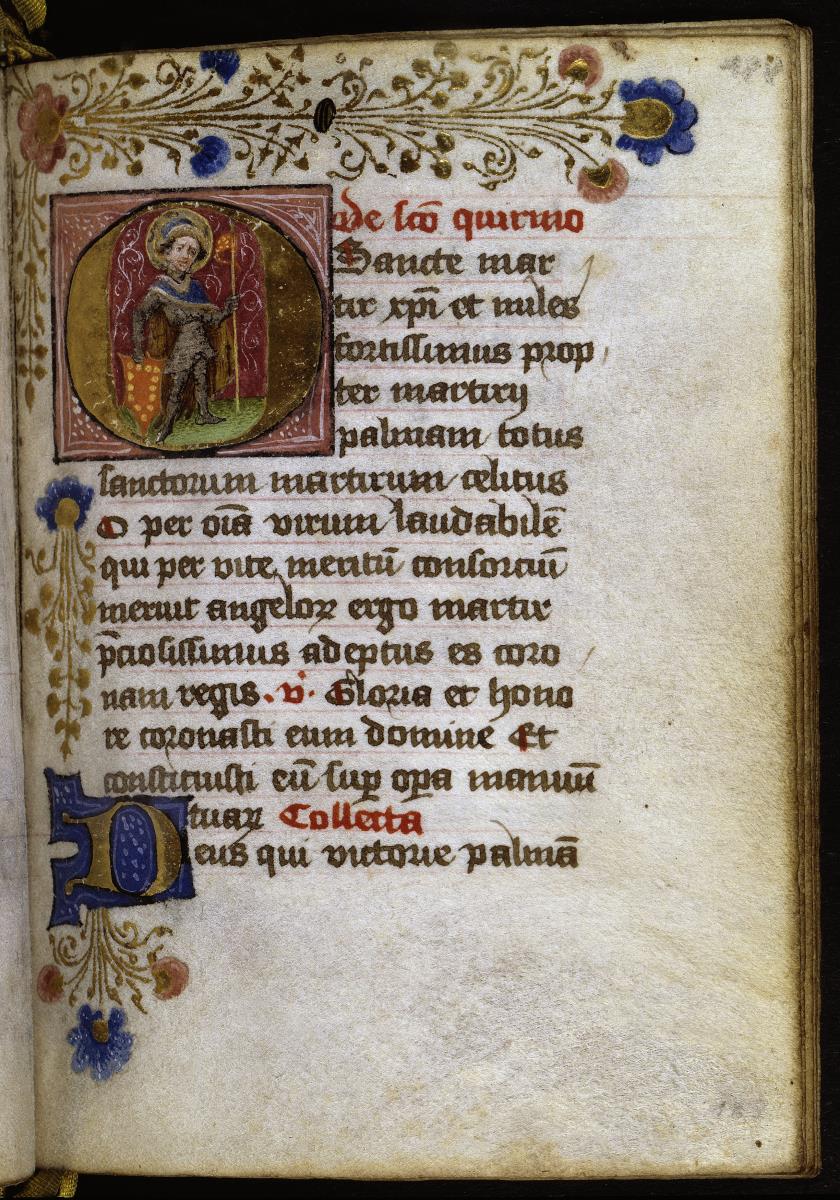 De sc̄o quirino
O Sancte mar
tir xp̄i et miles
fortissimus prop
ter martirij
palmam totus
sanctorum martirum celitus
O per oīa virum laudabilē
qui per vite meritū consorciū
meruit angeloꝝ ergo martir
p̄ciosissimus adeptus es coro
nam regis. v. Gloria et hono
re coronasti eum domine Et
constituisti eū sup oꝑa manuū
tuaꝝ Collecta
Deus qui victorie palmā